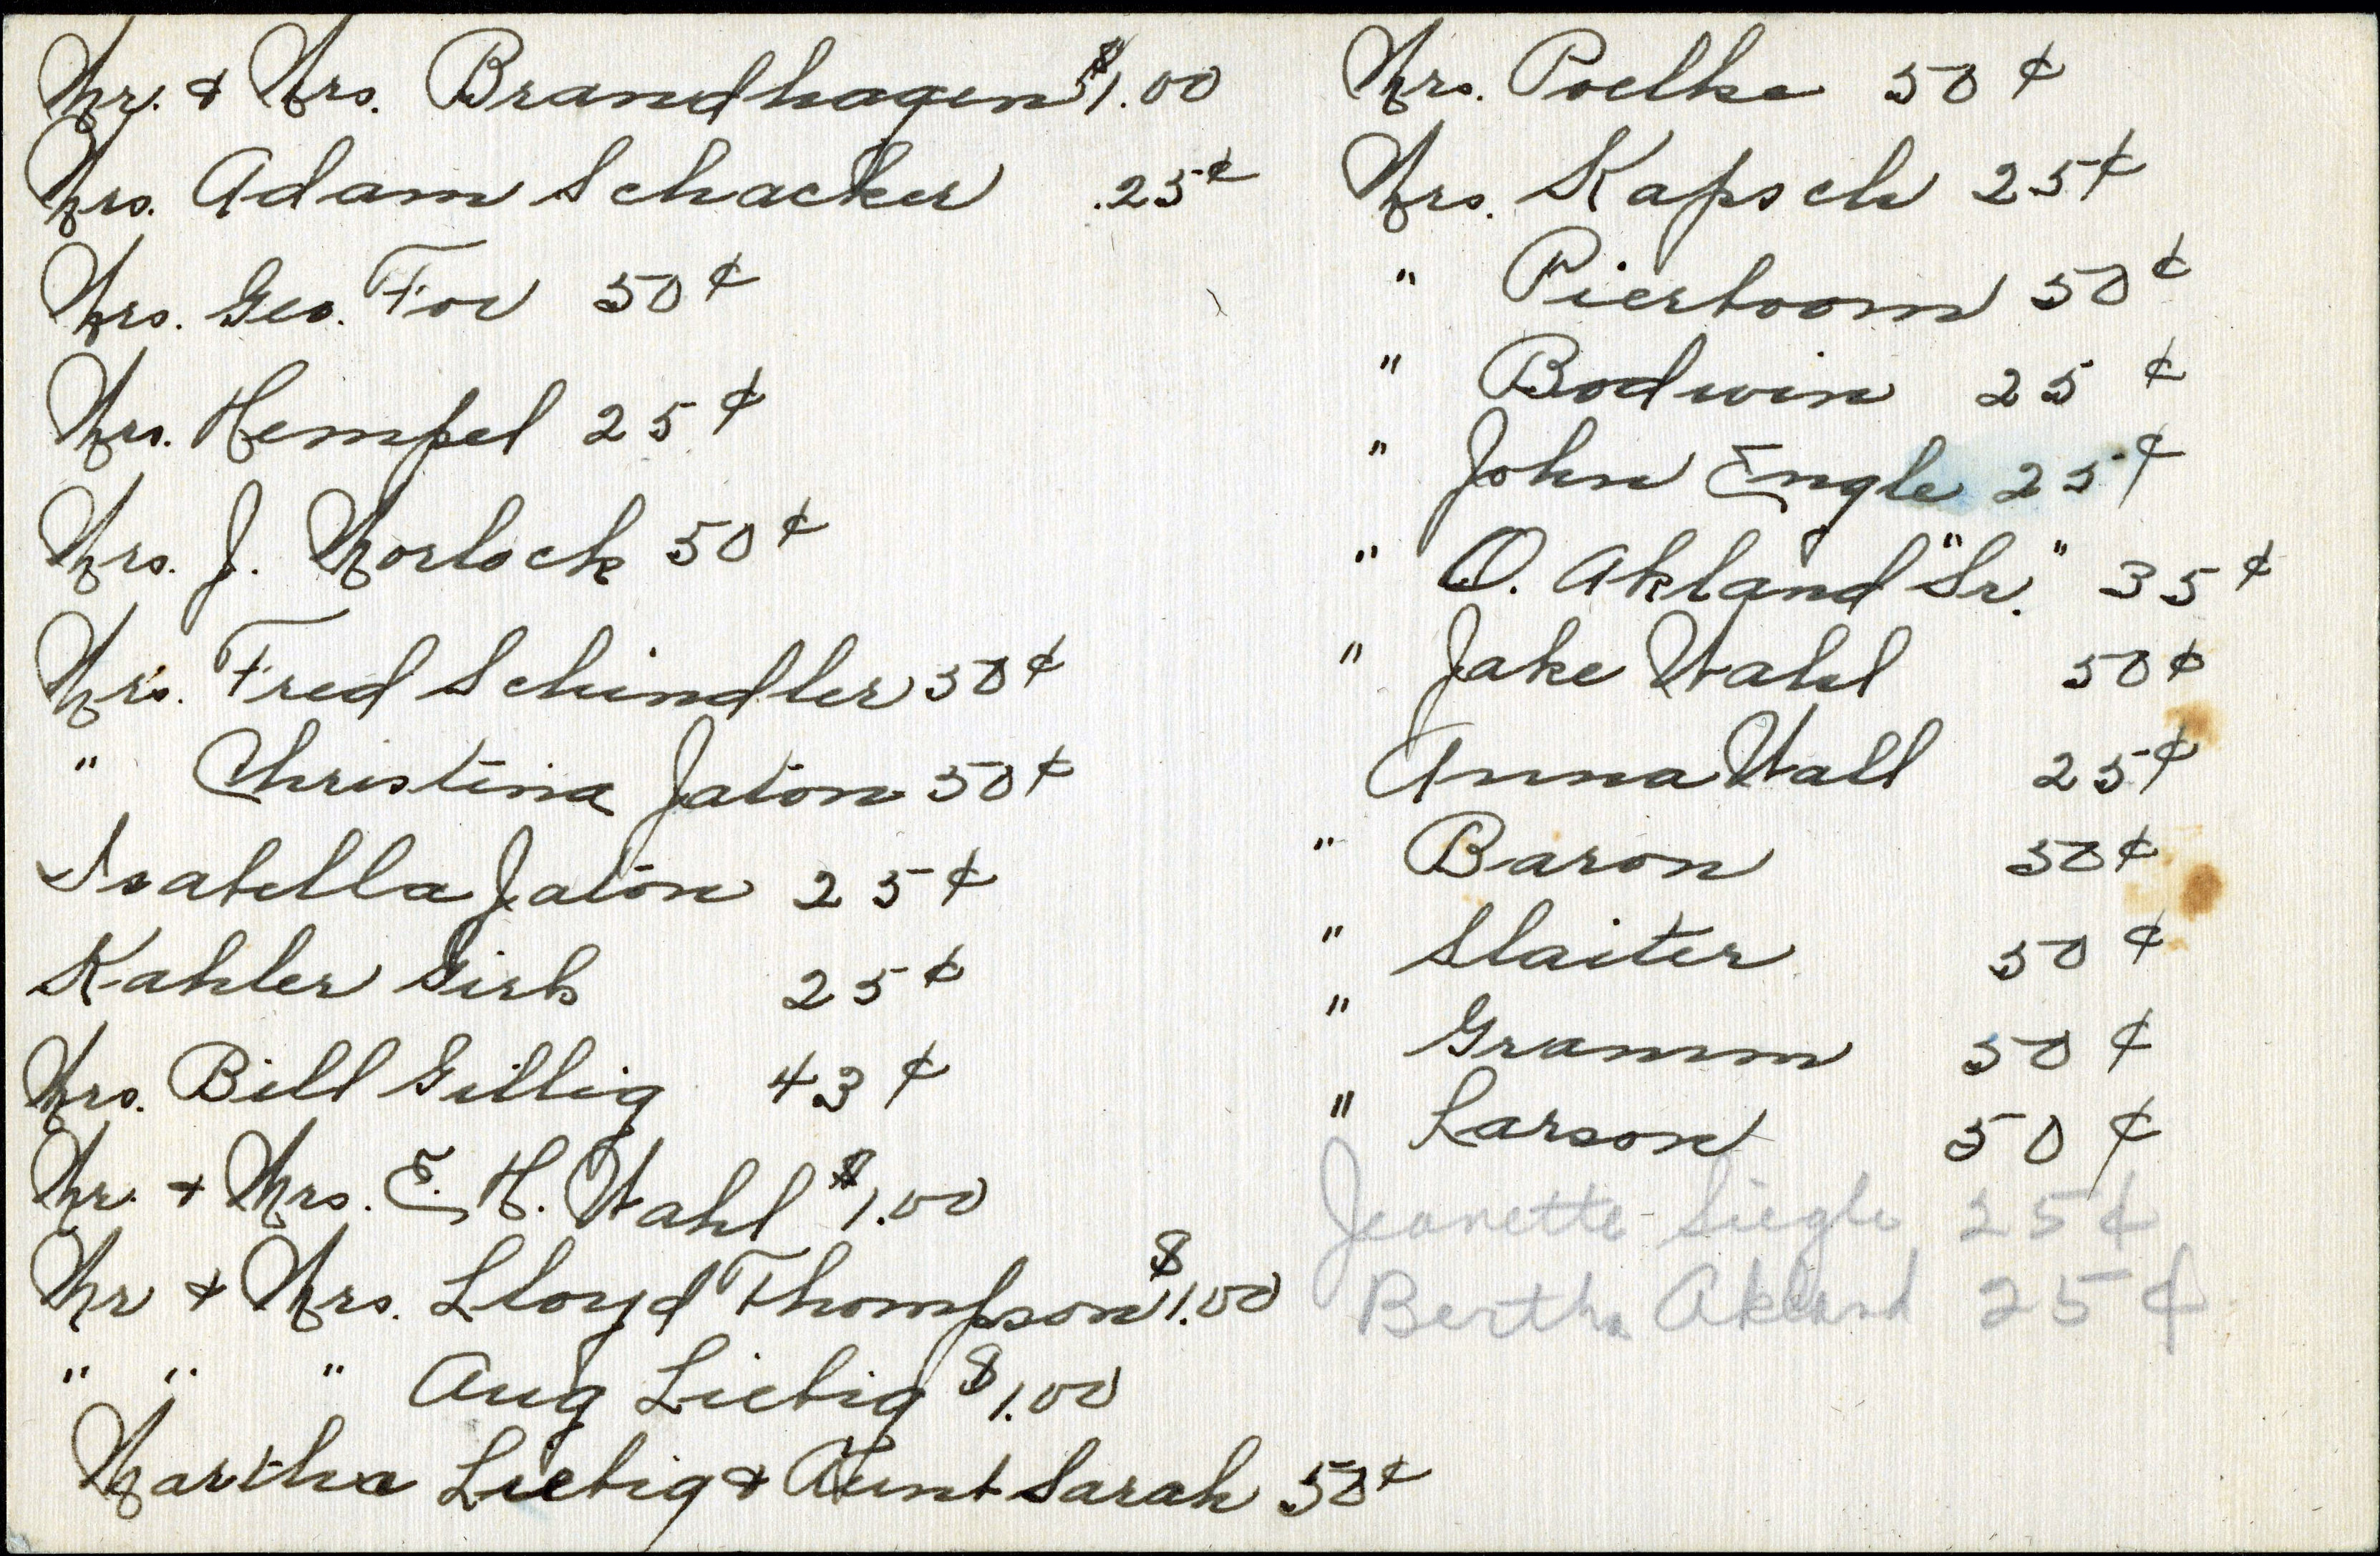 Mr. & Mrs. Brandhagen $1.00
Mrs. Adam Schacker .25¢
Mrs. Geo. Fov 50¢
Mrs. Hempel 25¢
Mrs. J. Morlock 50¢
Mrs. Fred Schindler 50¢
" Christina Jaton 50¢
Isabella Jaton 25¢
Kahler Girls 25¢
Mrs. Bill Gillig 43¢
Mr. & Mrs. E. H. Wahl $1.00
Mr & Mrs. Lloyd Thompson $1.00
" " " Aug Liebig $1.00
Martha Liebig & Aunt Sarah 50¢
Mrs. Poelke 50¢
Mrs. Kapsch 25¢
" Pierboom 50¢
" Bodwin 25¢
" John Engle 25¢
" O. Akland "Sr." 35¢
" Jake Wahl 50¢
Anna Wall 25¢
" Baron 50¢
" Slaiter 50¢
" Gramm 50¢
" Larson 50¢
Jeanette Siegle 25¢
Bertha Akland 25¢